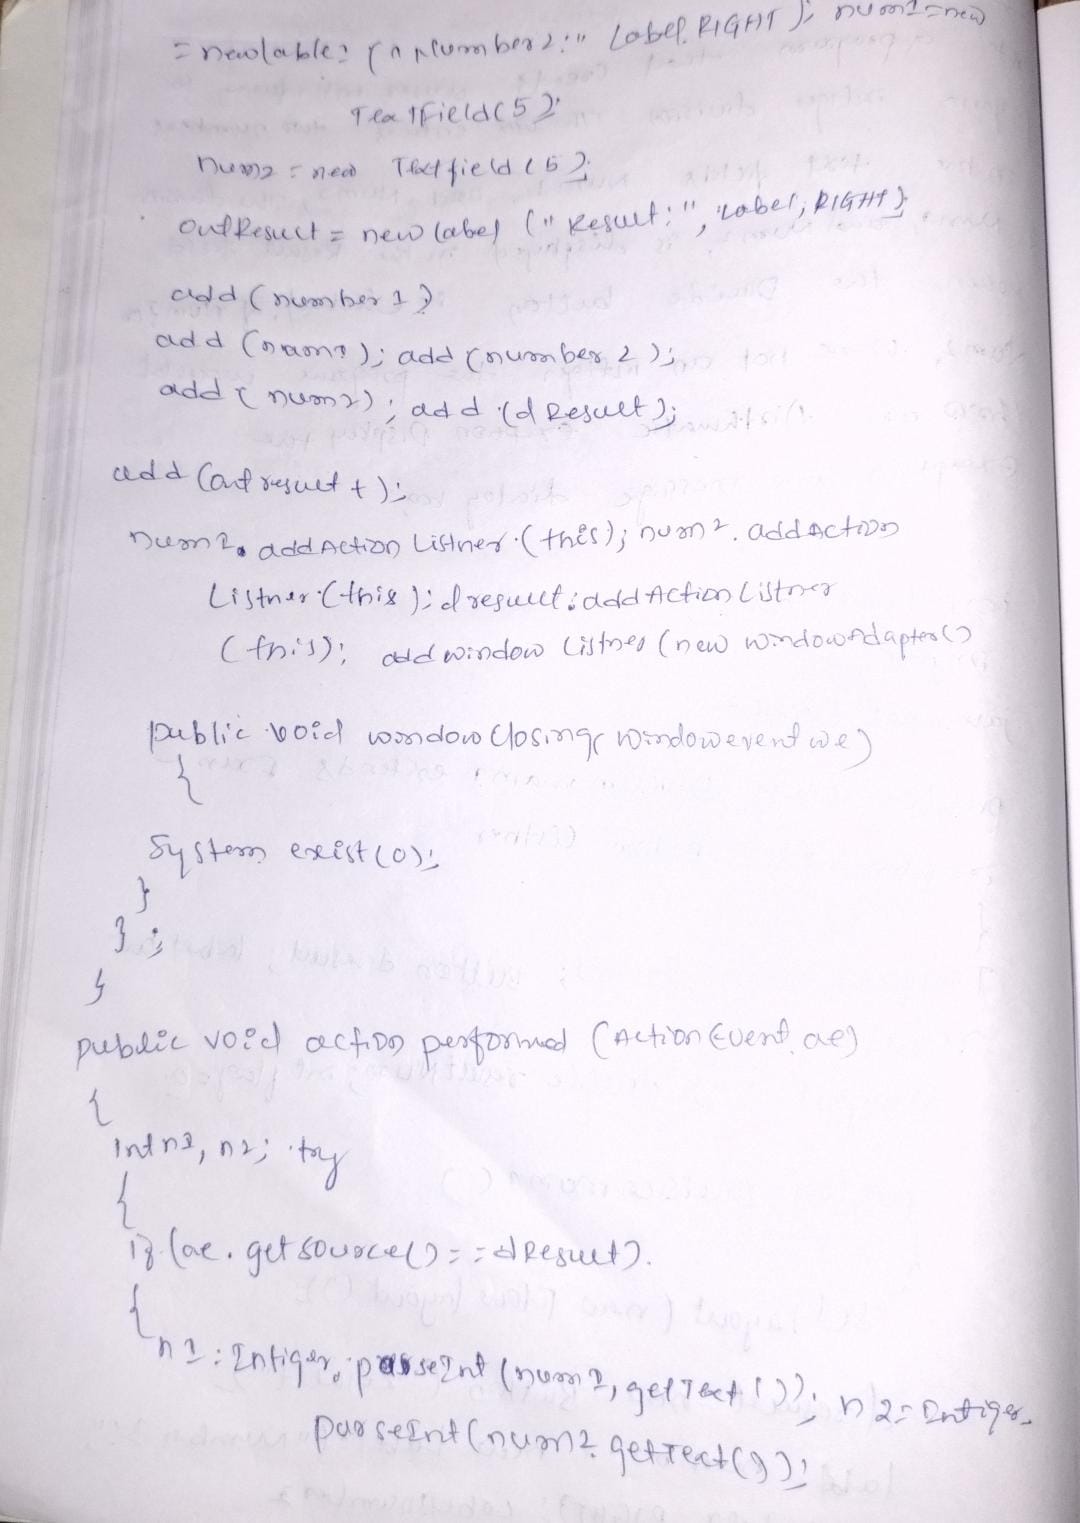 = newlable: ("Number 2:" Label.RIGHT); num1=new
TextField(5);
num2 = new Textfield (5);
outResult = new label ("Result:", Label, RIGHT);
add (number 1)
add (num1); add (number 2);
add (num2); add (dResult);
add (outresult t);
num2. addAction Listner (this); num2. addAction
Listner (this); dresult: addAction Listner
(this); addwindow Listner (new windowAdapter()
public void window closing( windowevent we)
{
System exist(0);
}
};
}
public void action performed (ActionEvent ae)
{
int n1, n2; try
{
if (ae. getsource() = = dResult).
{
n1 : Intiger. parseInt (num1, getText()); n 2= Intiger.
parseInt (num2 getText());